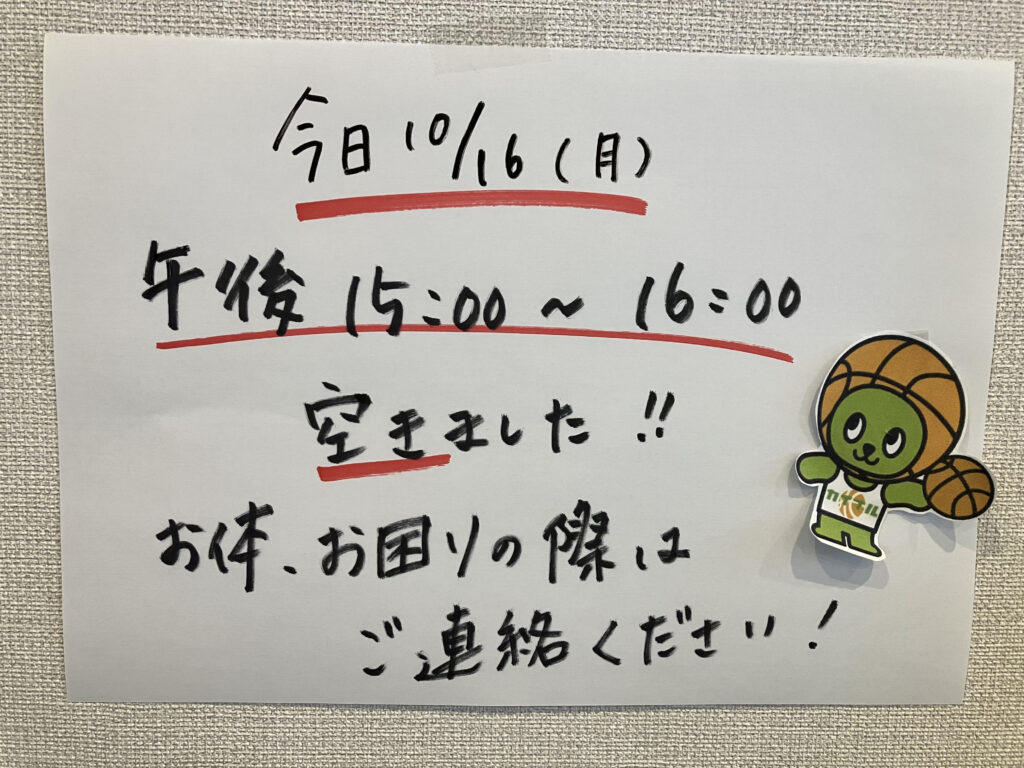 今日 10/16(月)
午後 15:00 ~ 16:00
空きました!!
お体、お困りの際は
ご連絡ください!
カイネル